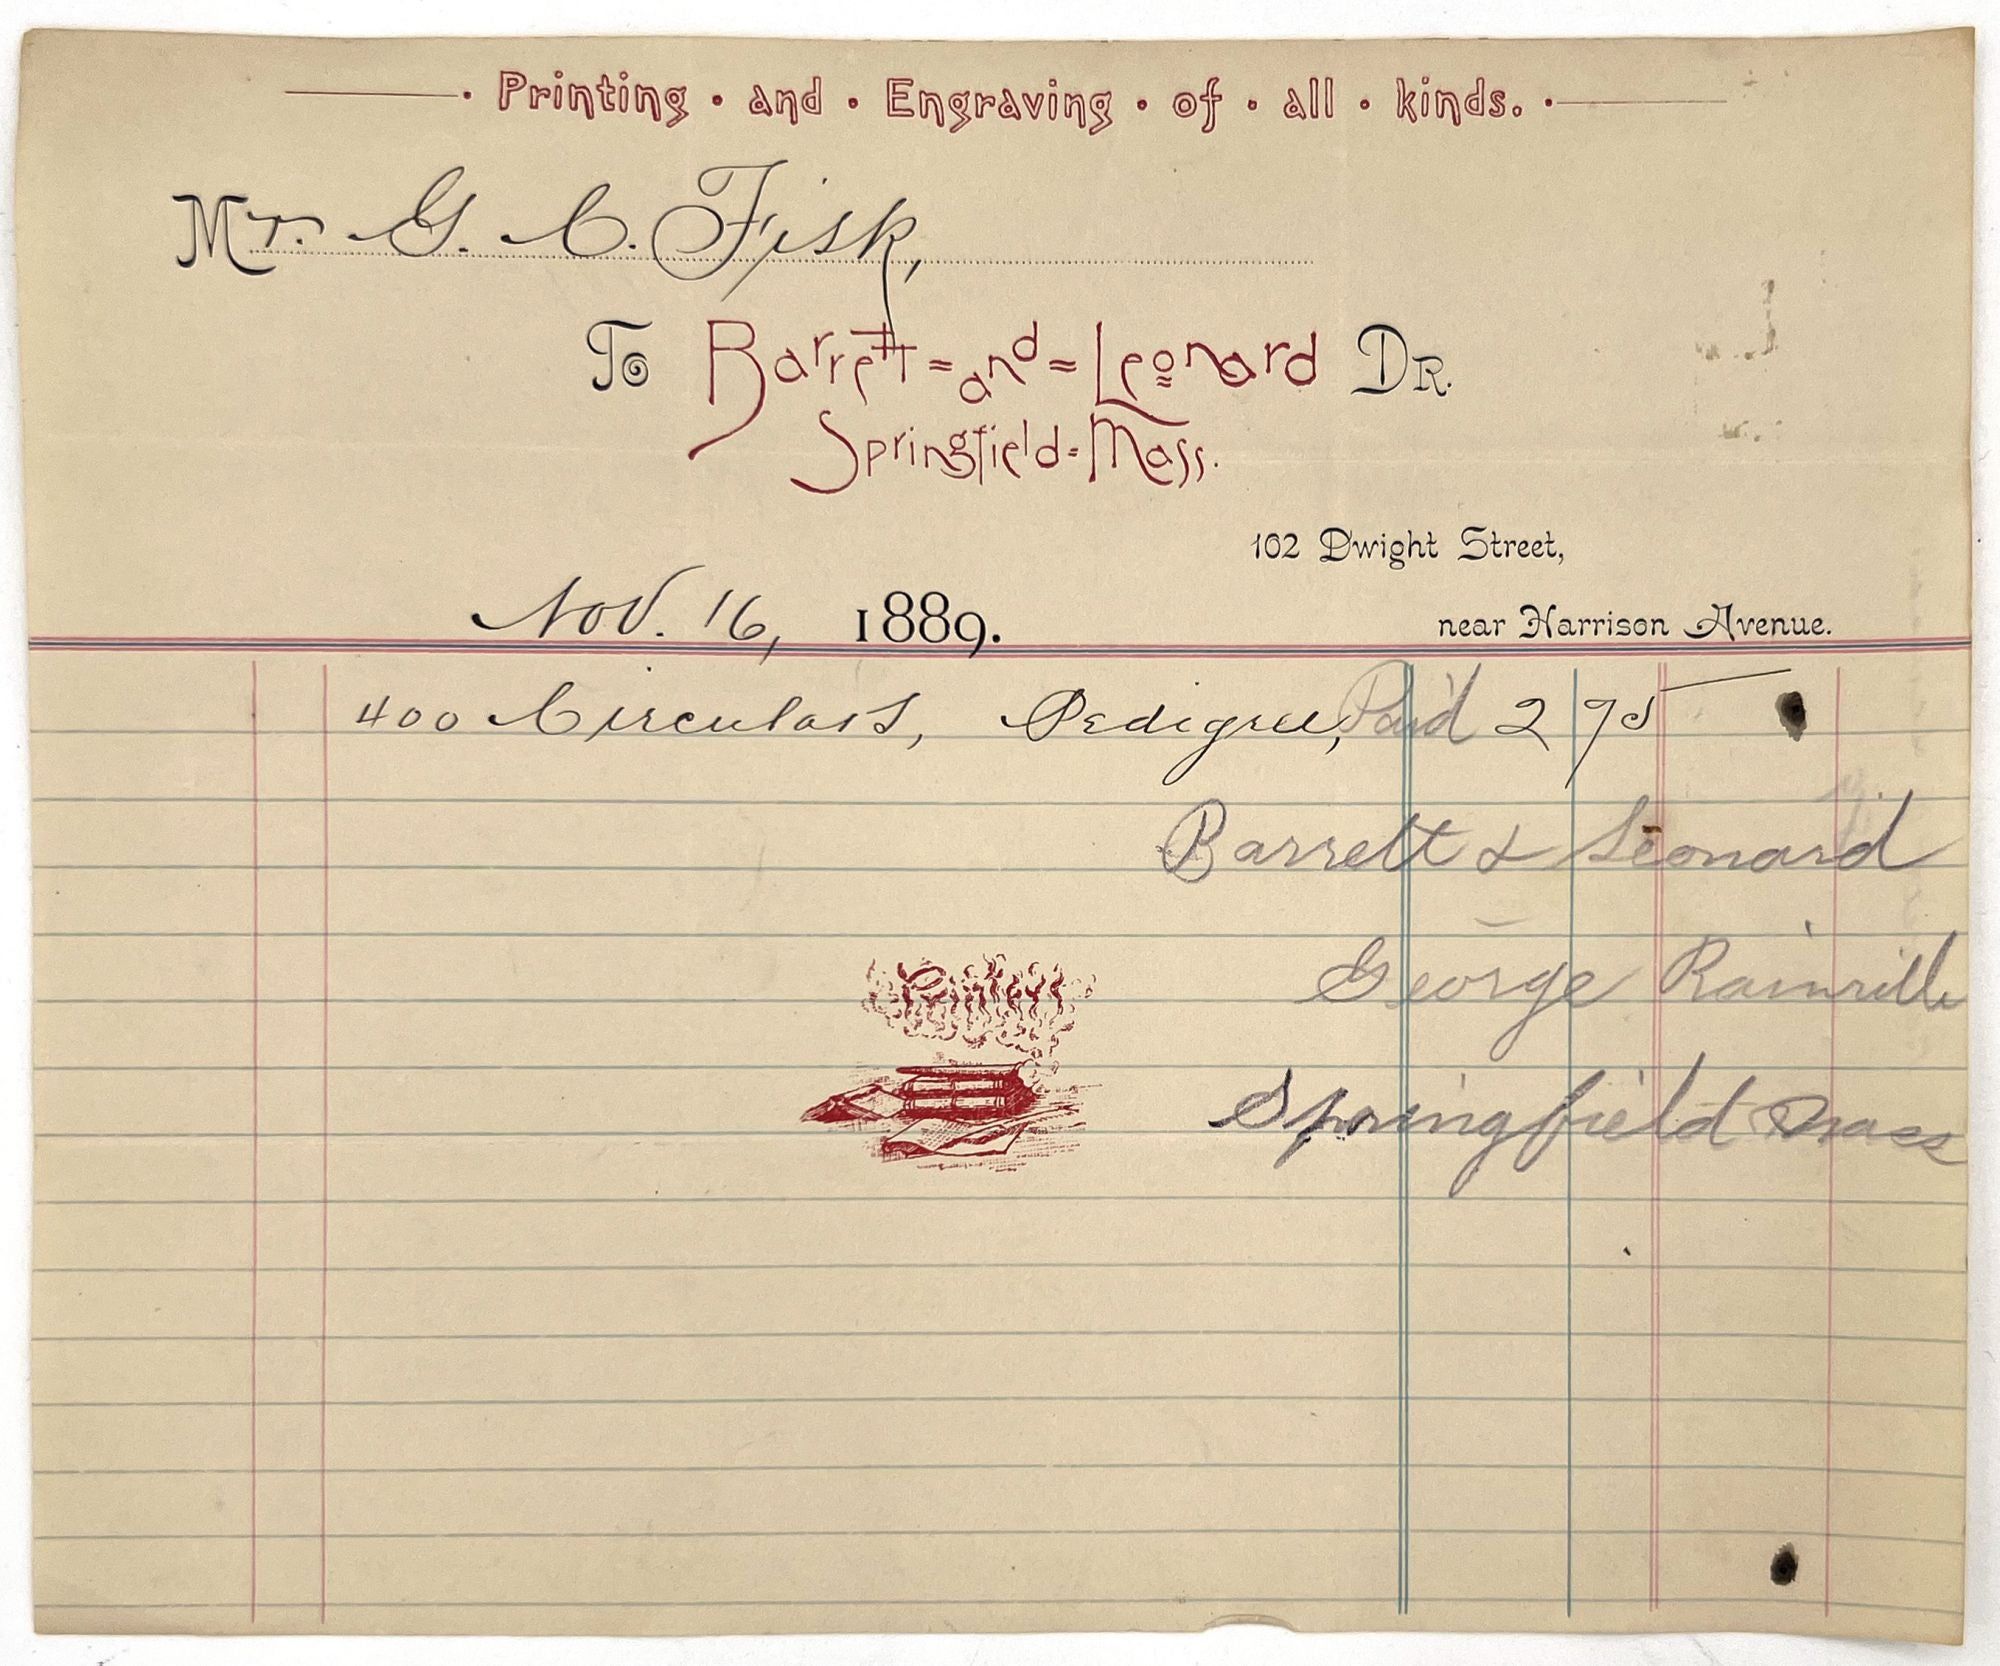 · Printing · and · Engraving · of · all · kinds. ·
Mr. G. C. Fisk,
To Barrett = and = Leonard Dr.
Springfield = Mass.
102 Dwight Street,
near Harrison Avenue.
Nov. 16, 1889.
400 Circulars, Pedigree, Paid 2 75
Barrett & Leonard
George Rainville
Printers
Springfield Mass